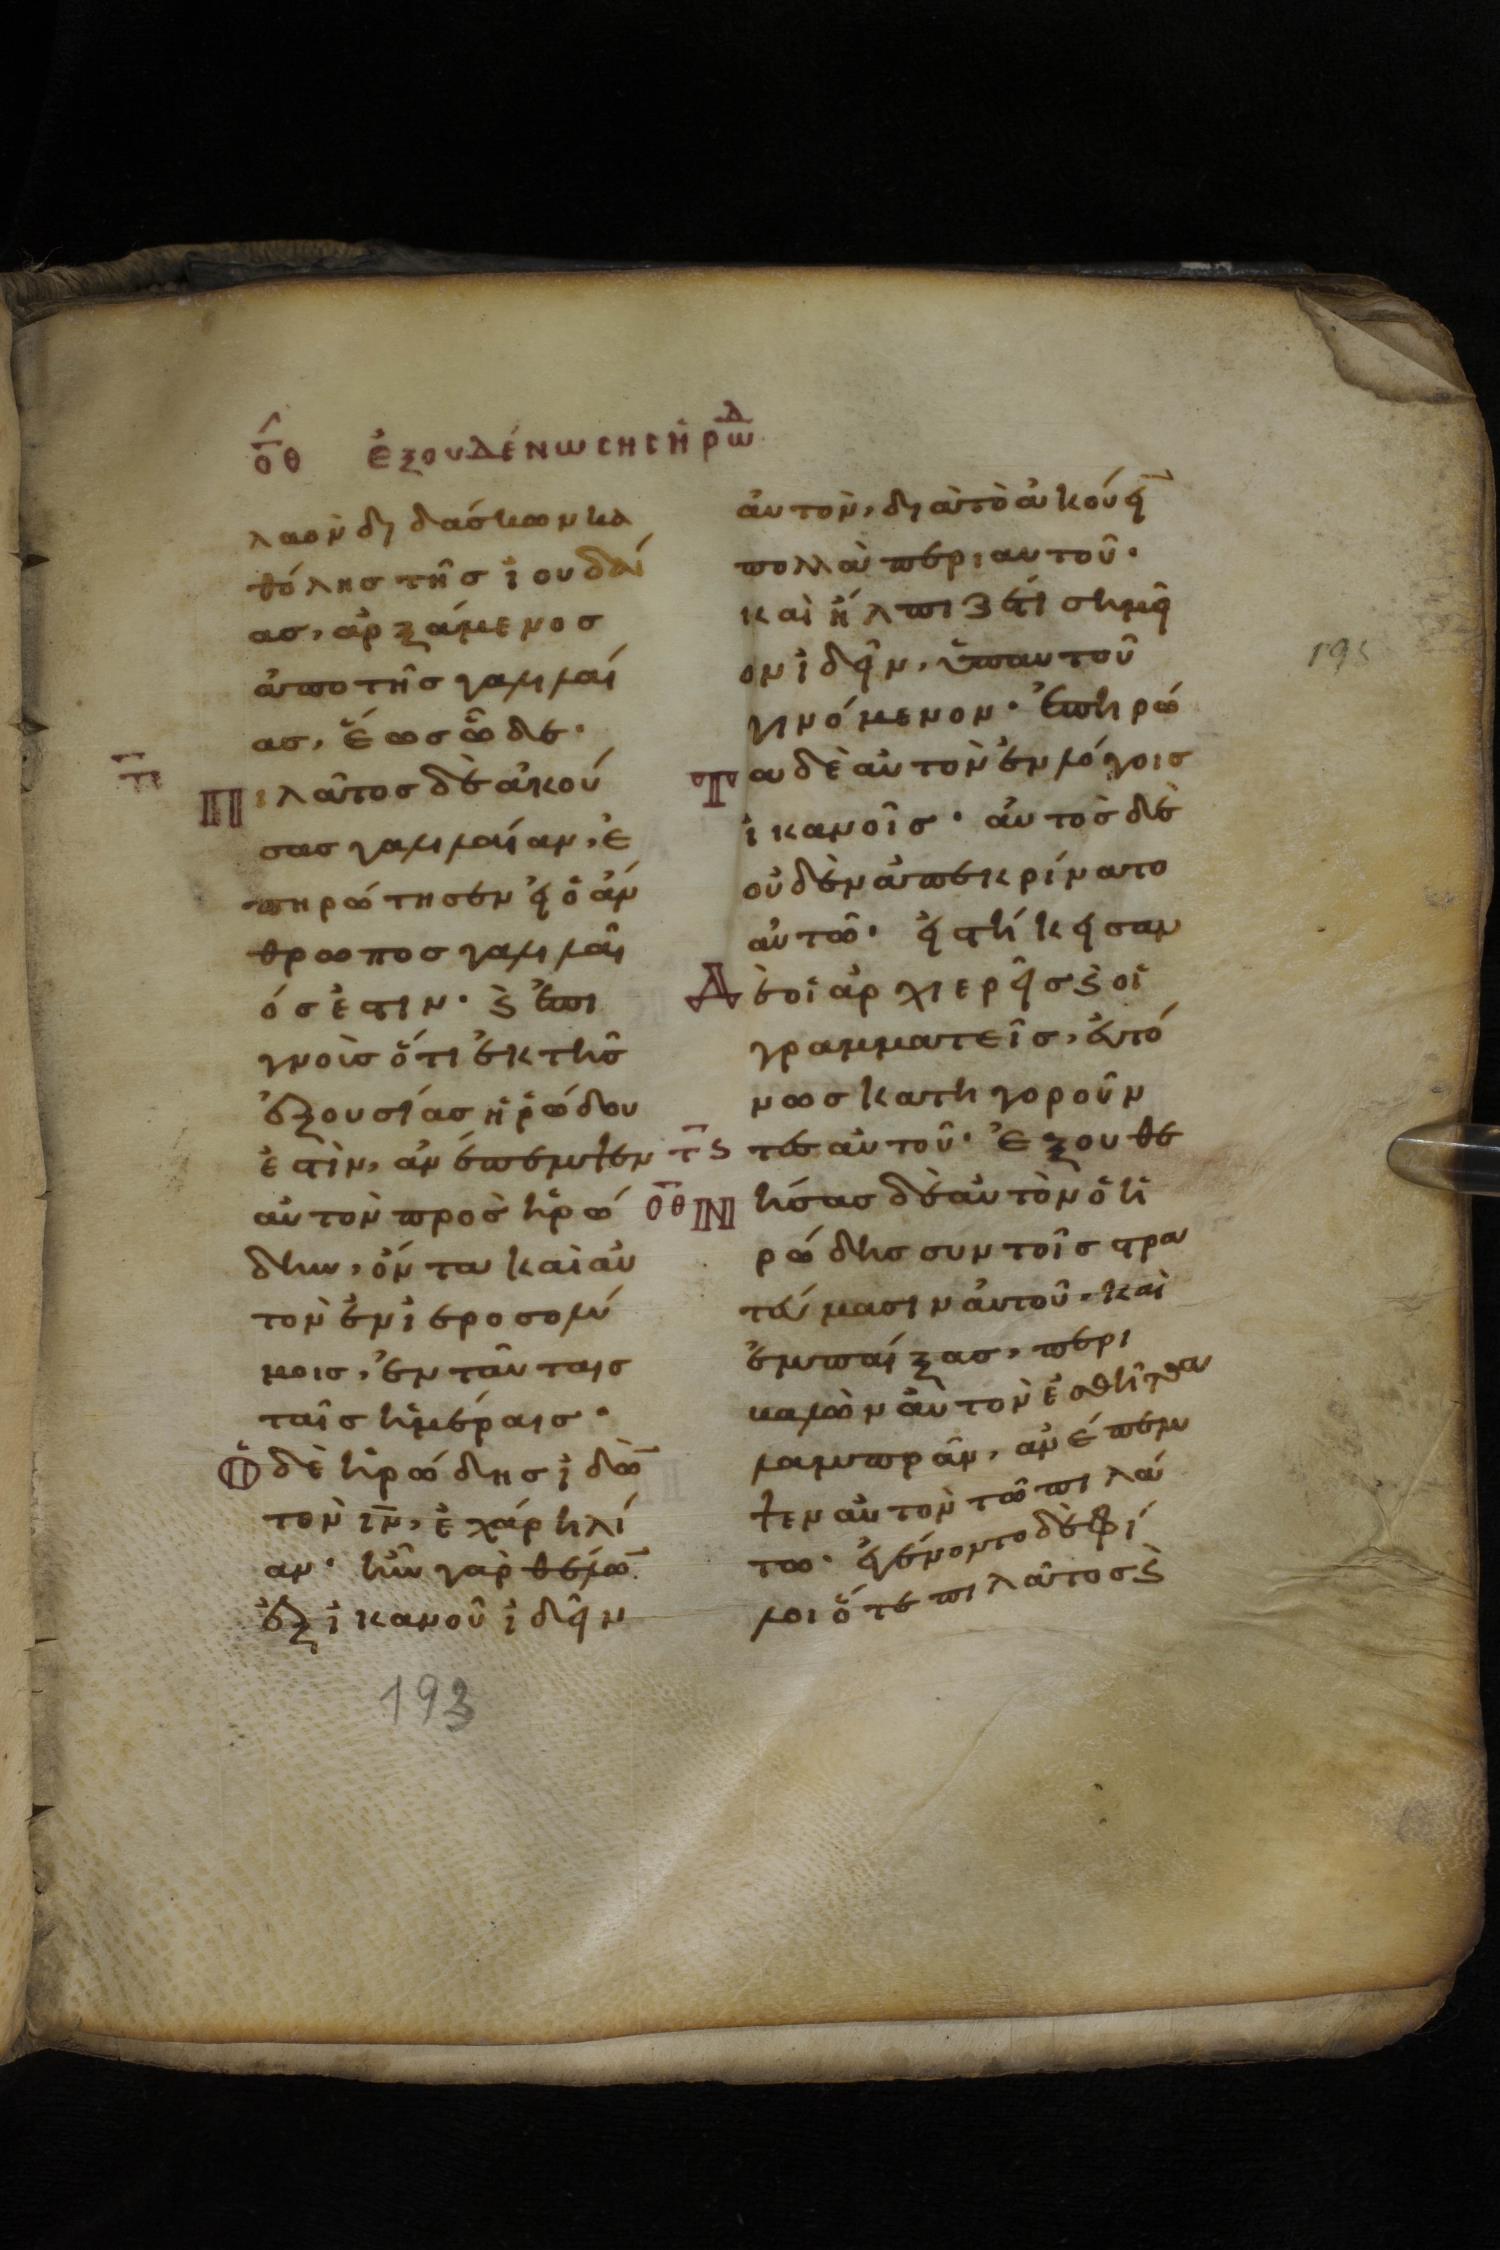 οθ ἐξουδένωσησ ἡρωδ
λαὸν διδάσκων κα
θόλησ τῆσ ἰουδαί
ασ, ἀρξάμενοσ
ἀπὸ τῆσ γαλιλαί
ασ, ἕωσ ὧδε·
Πιλᾶτοσ δὲ ἀκού
σασ γαλιλαίαν, ἐ
πηρώτησεν εἰ ὁ ἄν
θρωποσ γαλιλαῖ
όσ ἐστιν· ϗ ἐπι
γνοὺσ ὅτι ἐκ τῆσ
ἐξουσίασ ἡρώδου
ἐστὶν, ἀνέπεμψεν
αὐτὸν πρὸσ ἡρώ
δην, ὄντα καὶ αὐ
τὸν ἐν ἱεροσολύ
μοισ, ἐν ταύταισ
ταῖσ ἡμέραισ·
Ὁ δὲ ἡρώδησ ἰδὼ
τὸν ιν, ἐχάρη λί
αν· ἦν γὰρ θέλω
ἐξ ἱκανοῦ ἰδεῖν
193
αὐτὸν, διὰ τὸ ἀκούει
πολλὰ περὶ αὐτοῦ·
καὶ ἤλπιζέ τι σημεῖ
ον ἰδεῖν, ὑπ αυτοῦ
γινόμενον· ἐπηρώ
Τα δὲ αὐτὸν ἐν λόγοισ
ἱκανοῖσ· αὐτὸσ δὲ
οὐδὲν ἀπεκρίνατο
αὐτῶ· εἱστήκεισαν
Δὲ οἱ ἀρχιερεῖσ ϗ οἱ
γραμματεῖσ, εὐτό
νωσ κατηγοροῦν
τσ τεσ αὐτοῦ· Ἐξουθε
οθ Νήσασ δὲ αὐτὸν ὁ ἡ
ρώδησ συν τοῖσ στρα
τεύμασιν αὐτοῦ· καὶ
ἐμπαίξασ, περι
βαλὼν αὐτὸν ἐσθῆτα
λαμπρὰν, ἀνέπεμ
ψεν αὐτὸν τῶ πιλά
τω· ἐγένοντο δὲ φί
λοι ὅ τε πιλᾶτοσ ϗ